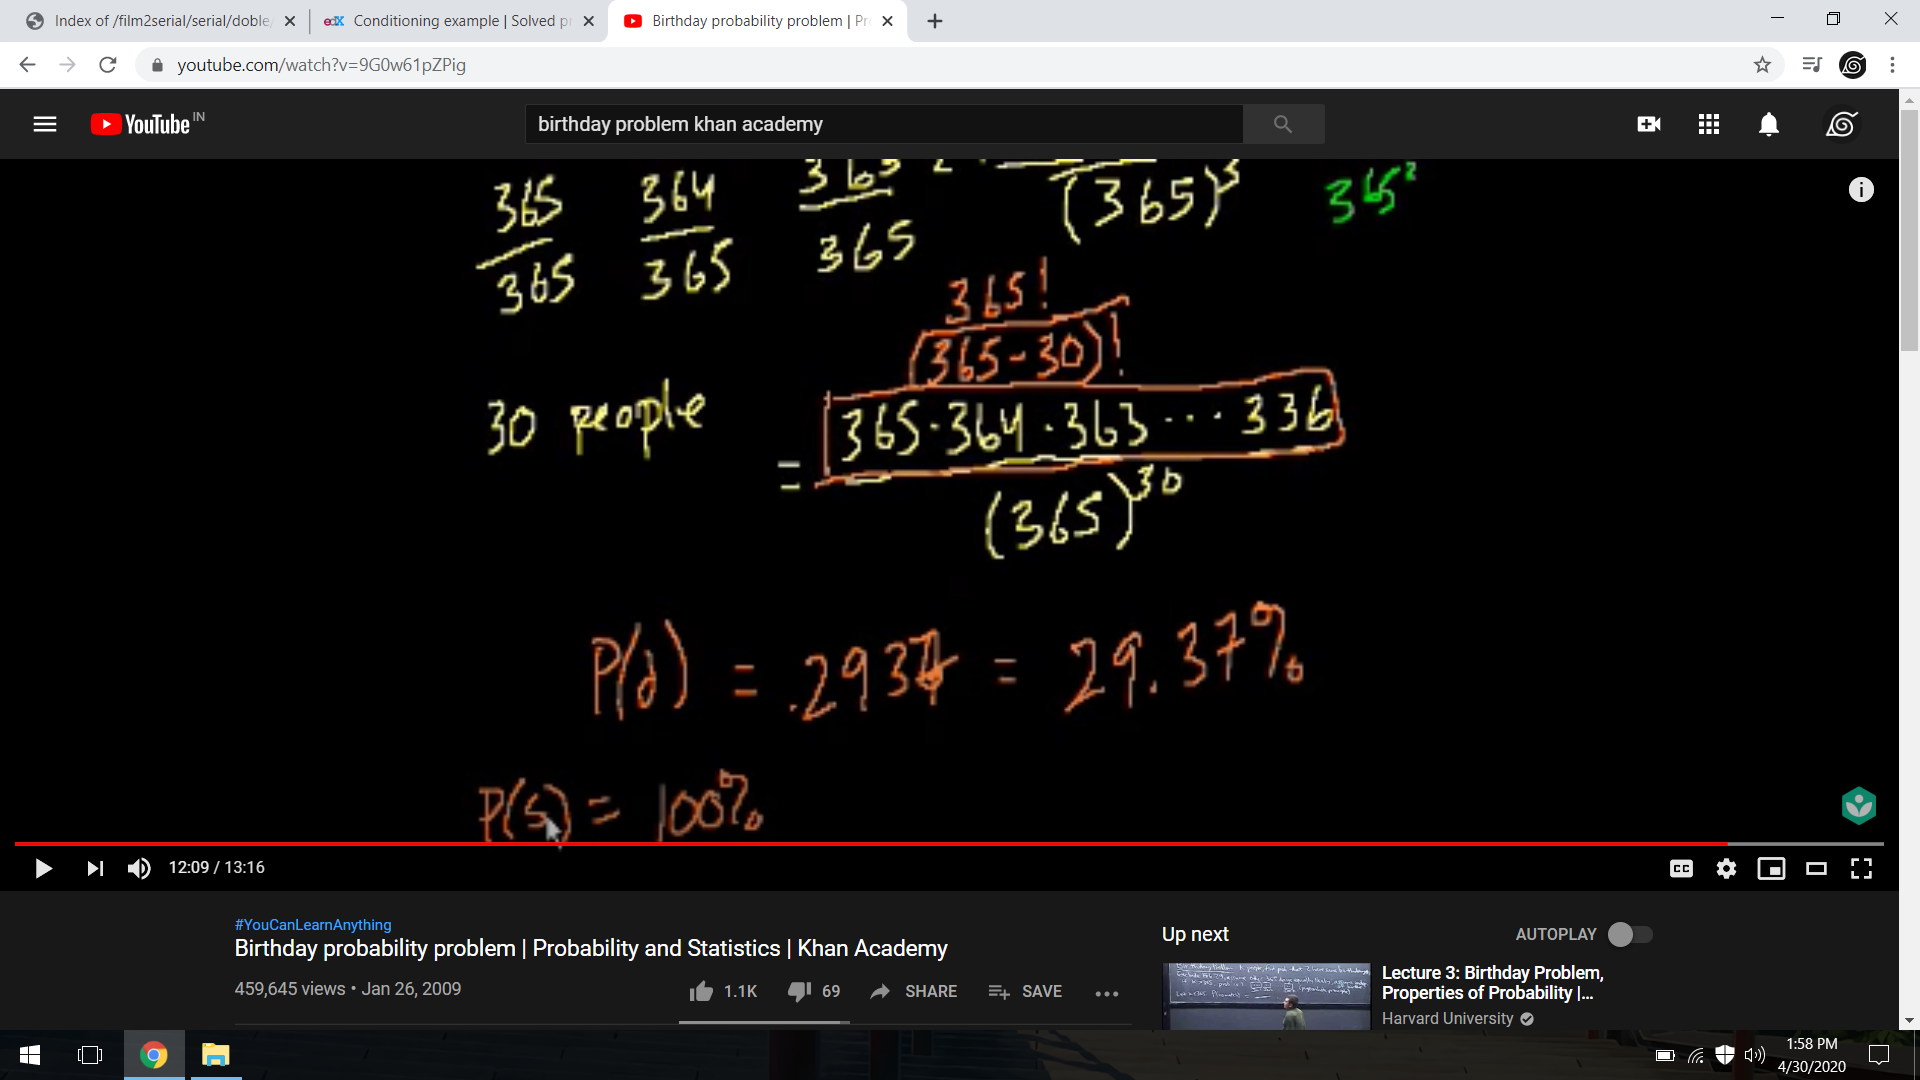 Index of /film2serial/serial/doble/
Conditioning example | Solved pr
Birthday probability problem | Pr
youtube.com/watch?v=9G0w61pZPig
YouTube IN
birthday problem khan academy
365 364 363 = (365)³ 365²
365 365 365
365!
(365-30)!
30 people = 365·364·363···336
(365)³⁰
P(d) = .2937 = 29.37%
P(s) = 100%
12:09 / 13:16
CC
#YouCanLearnAnything
Birthday probability problem | Probability and Statistics | Khan Academy
459,645 views • Jan 26, 2009
1.1K 69 SHARE SAVE
Up next AUTOPLAY
Lecture 3: Birthday Problem,
Properties of Probability |...
Harvard University
1:58 PM
4/30/2020